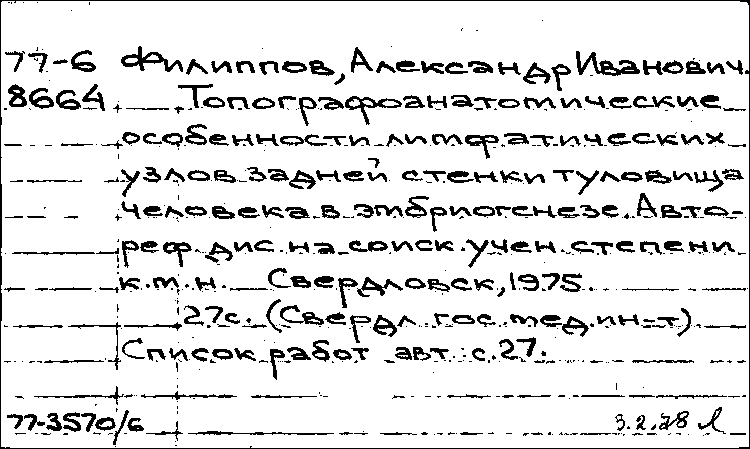 77-6 Филиппов, Александр Иванович.
8664 Топографоанатомические
особенности лимфатических
узлов задней стенки туловища
человека в эмбриогенезе. Авто-
реф. дис. на соиск. учен. степени
к.м.н. Свердловск, 1975.
27с. (Свердл. гос. мед. ин-т)
Список работ авт.: с. 27.
77-3570/6 3.2.78 Л